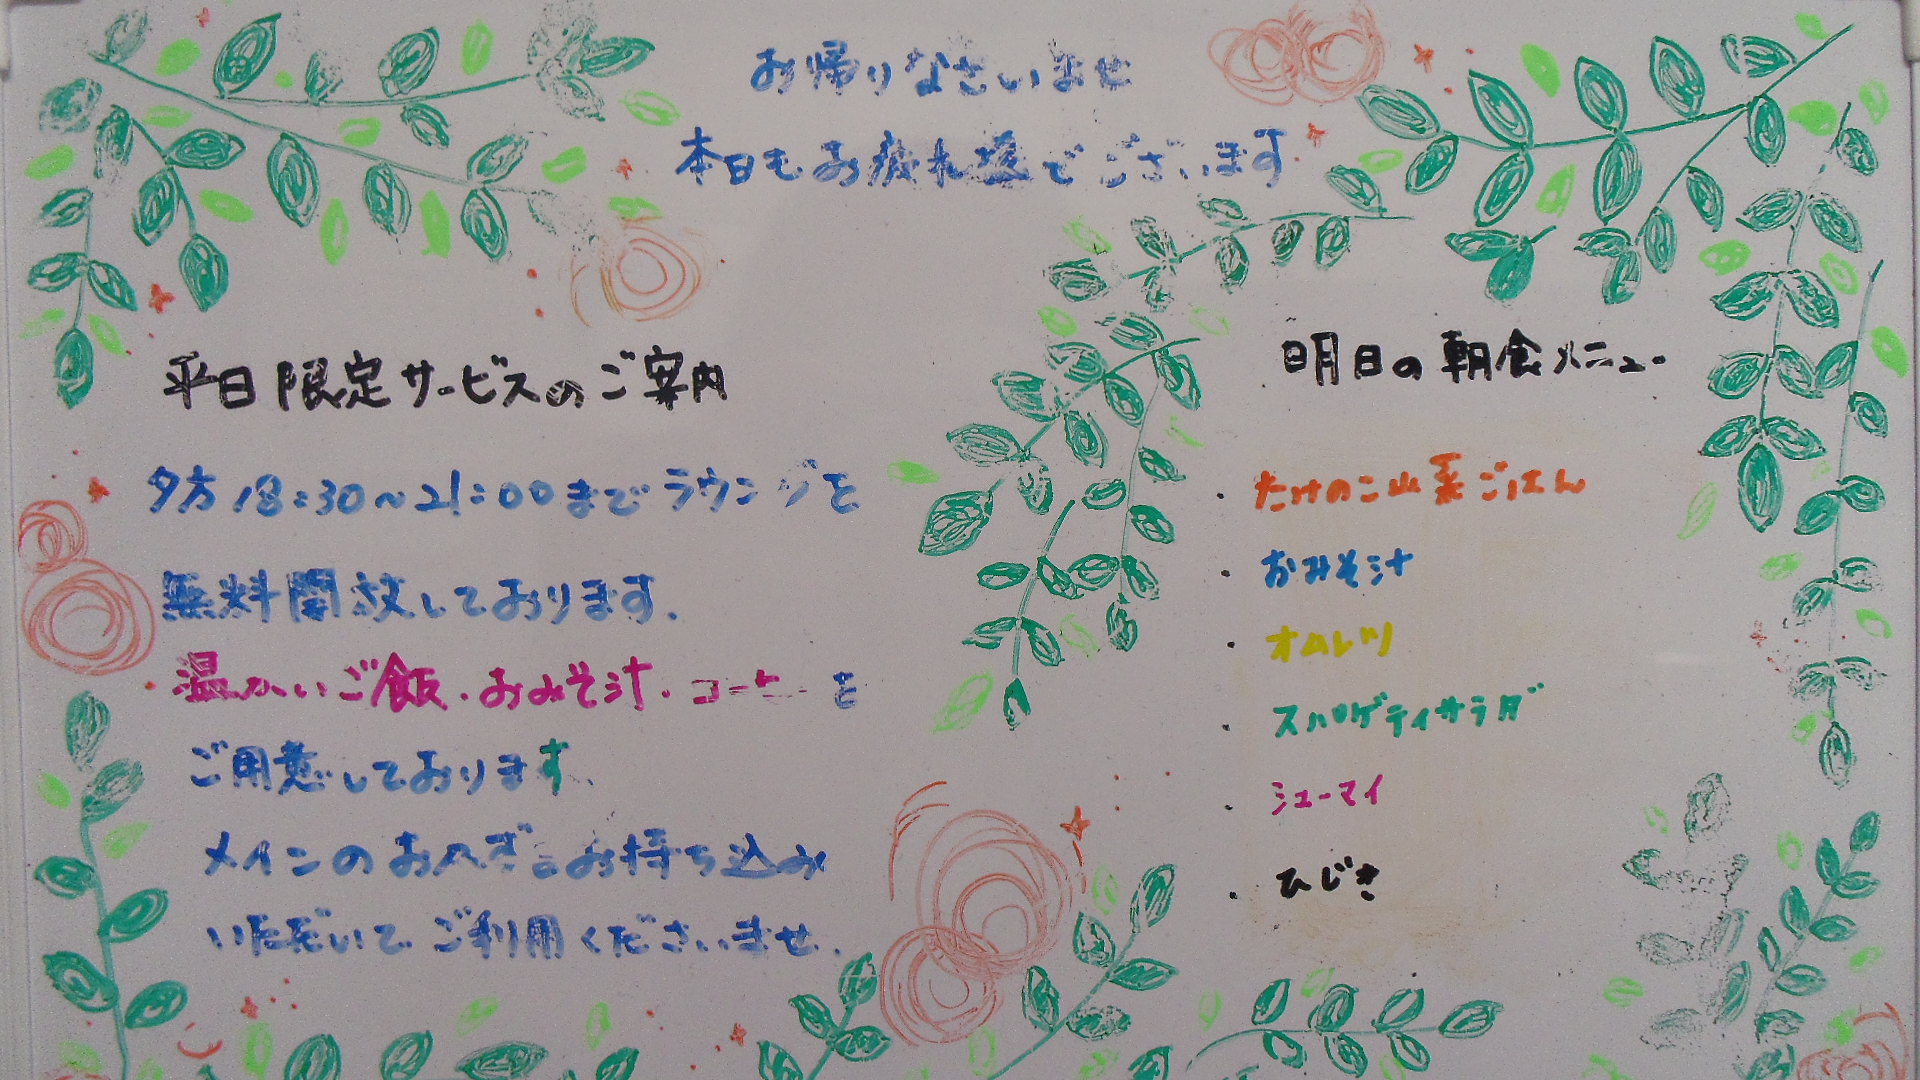 お帰りなさいませ
本日もお疲れ様でございます
平日限定サービスのご案内
夕方18:30〜21:00までラウンジを
無料開放しております.
温かいご飯.おみそ汁.コーヒーを
ご用意しております.
メインのおかずをお持ち込み
いただいてご利用くださいませ.
明日の朝食メニュー
・たけのこ山菜ごはん
・おみそ汁
・オムレツ
・スパゲティサラダ
・シューマイ
・ひじき